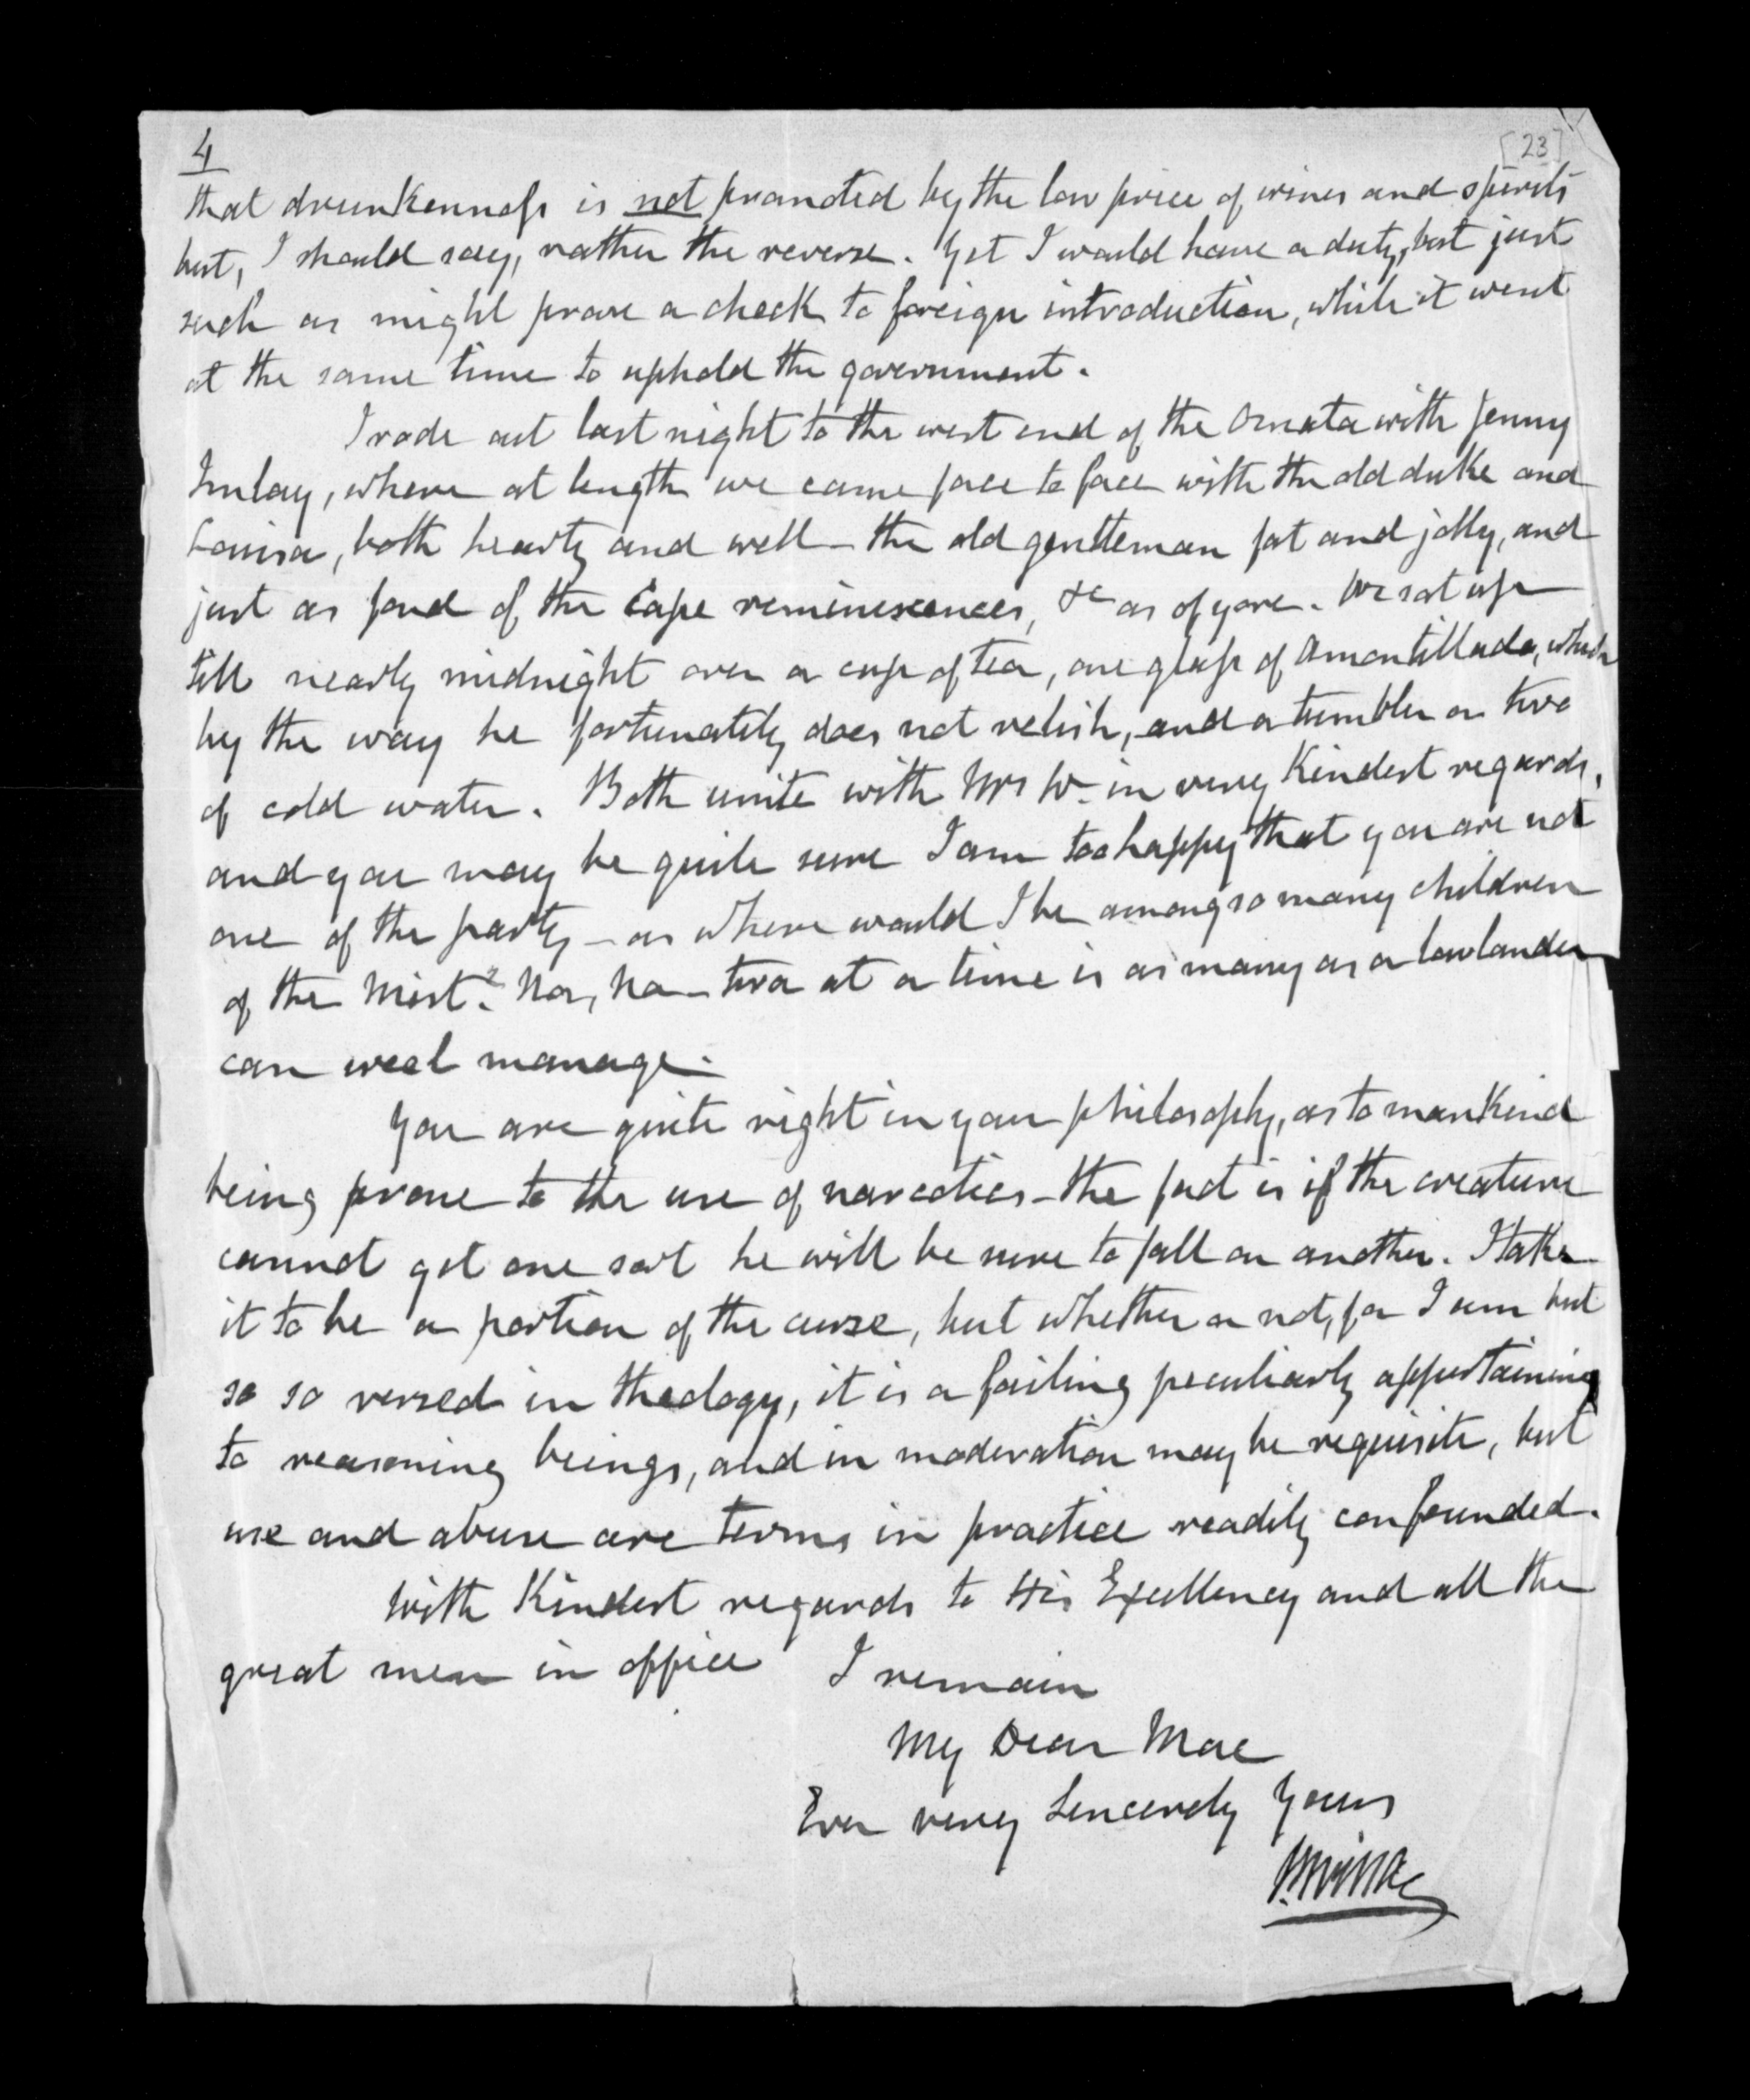 4
[23]
that drunkenness is not promoted by the low price of wines and spirits
but, I should say, rather the reverse. Yet I would have a duty, but just
such as might prove a check to foreign introduction, while it went
at the same time to uphold the government.
I rode out last night to the west end of the Omata with Jenny
Imlay, where at length we came face to face with the old duke and
Louisa, both hearty and well – the old gentleman fat and jolly, and
just as fond of the Cape reminescences, &c as of yore. We sat up
till nearly midnight over a cup of tea, one glass of Amontillado, which
by the way he fortunately does not relish, and a tumbler or two
of cold water. Both unite with Mrs W. in very Kindest regards,
and you may be quite sure I am too happy that you are not
one of the party – as where would I be among so many children
of the Mist? Na, Na – twa at a time is as many as a lowlander
can weel manage.
You are quite right in your philosophy, as to mankind
being prone to the use of narcotics – the fact is if the creature
cannot get one sort he will be sure to fall on another. I take
it to be a portion of the curse, but whether or not, for I am but
so so versed in theology, it is a failing peculiarly appertaining
to reasoning beings, and in moderation may be requisite, but
use and abuse are terms in practice readily confounded.
With Kindest regards to His Excellency and all the
great men in office I remain
My Dear Mac
Ever very Sincerely Yours